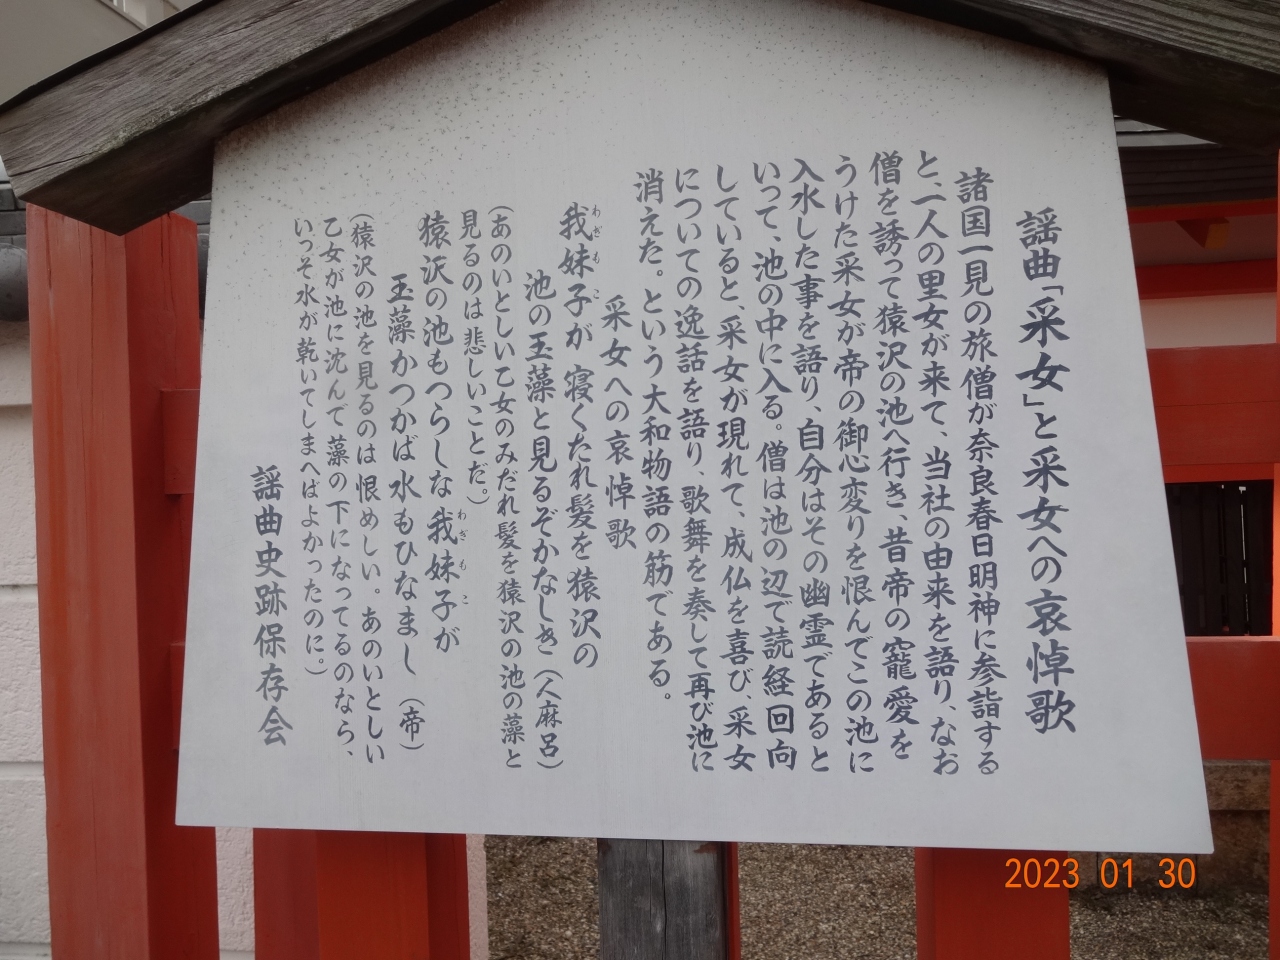 謡曲「采女」と采女への哀悼歌
諸国一見の旅僧が奈良春日明神に参詣する
と、一人の里女が来て、当社の由来を語り、なお
僧を誘って猿沢の池へ行き、昔帝の寵愛を
うけた采女が帝の御心変りを恨んでこの池に
入水した事を語り、自分はその幽霊であると
いって、池の中に入る。僧は池の辺で読経回向
していると、采女が現れて、成仏を喜び、采女
についての逸話を語り、歌舞を奏して再び池に
消えた。という大和物語の筋である。
采女への哀悼歌
我妹子が 寝くたれ髪を猿沢の
わぎもこ
池の玉藻と見るぞかなしき（人麻呂）
（あのいとしい乙女のみだれ髪を猿沢の池の藻と
見るのは悲しいことだ。）
猿沢の池もつらしな我妹子が
わぎもこ
玉藻かつかば水もひなまし（帝）
（猿沢の池を見るのは恨めしい。あのいとしい
乙女が池に沈んで藻の下になってるのなら、
いっそ水が乾いてしまへばよかったのに。）
謡曲史跡保存会
2023 01 30